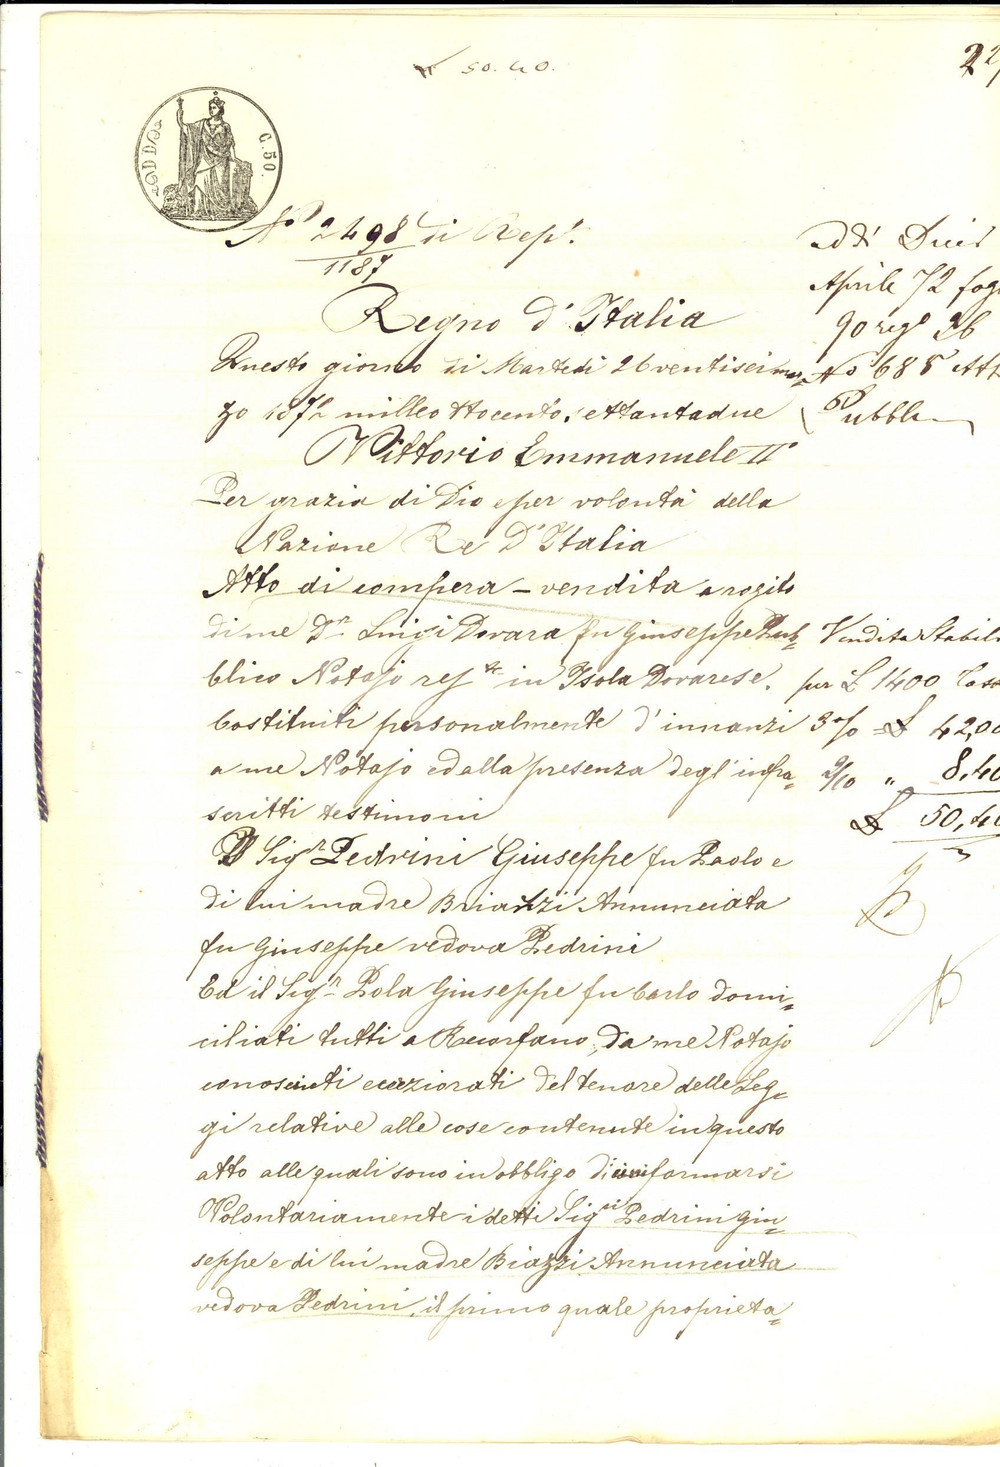 50.40.
22
C. 50.
N° 2498 di Rep.
1187
Regno d'Italia
Questo giorno di Martedì 26 ventisei mar=
zo 1872 milleottocento settantadue
Vittorio Emmanuele II°
Per grazia di Dio e per volontà della
Nazione Re D'Italia
Atto di compera - vendita a rogito
di me Dr. Luigi Dovara fu Giuseppe Pub=
blico Notajo reste in Isola Dovarese.
Costituiti personalmente d'innanzi
a me Notajo ed alla presenza degl'infra=
scritti testimoni
Il Sigr Pedrini Giuseppe fu Paolo e
di lui madre Biazzi Annunciata
fu Giuseppe vedova Pedrini
Ed il Sigr Pola Giuseppe fu Carlo domi=
ciliati tutti a Recorfano, da me Notajo
conosciuti eccziorati del tenore delle Leg=
gi relative alle cose contenute in questo
atto alle quali sono in obbligo di uniformarsi
Volontariamente i detti Sigri Pedrini Giu=
seppe e di lui madre Biazzi Annunciata
vedova Pedrini, il primo quale proprieta=
addì Dieci
Aprile 72 fog
90 regº 26
N° 685 Atti
Pubbli
Vendita Stabili
per £ 1400 Tass
3 % = £ 42,00
2/10 " 8,40
£ 50,40